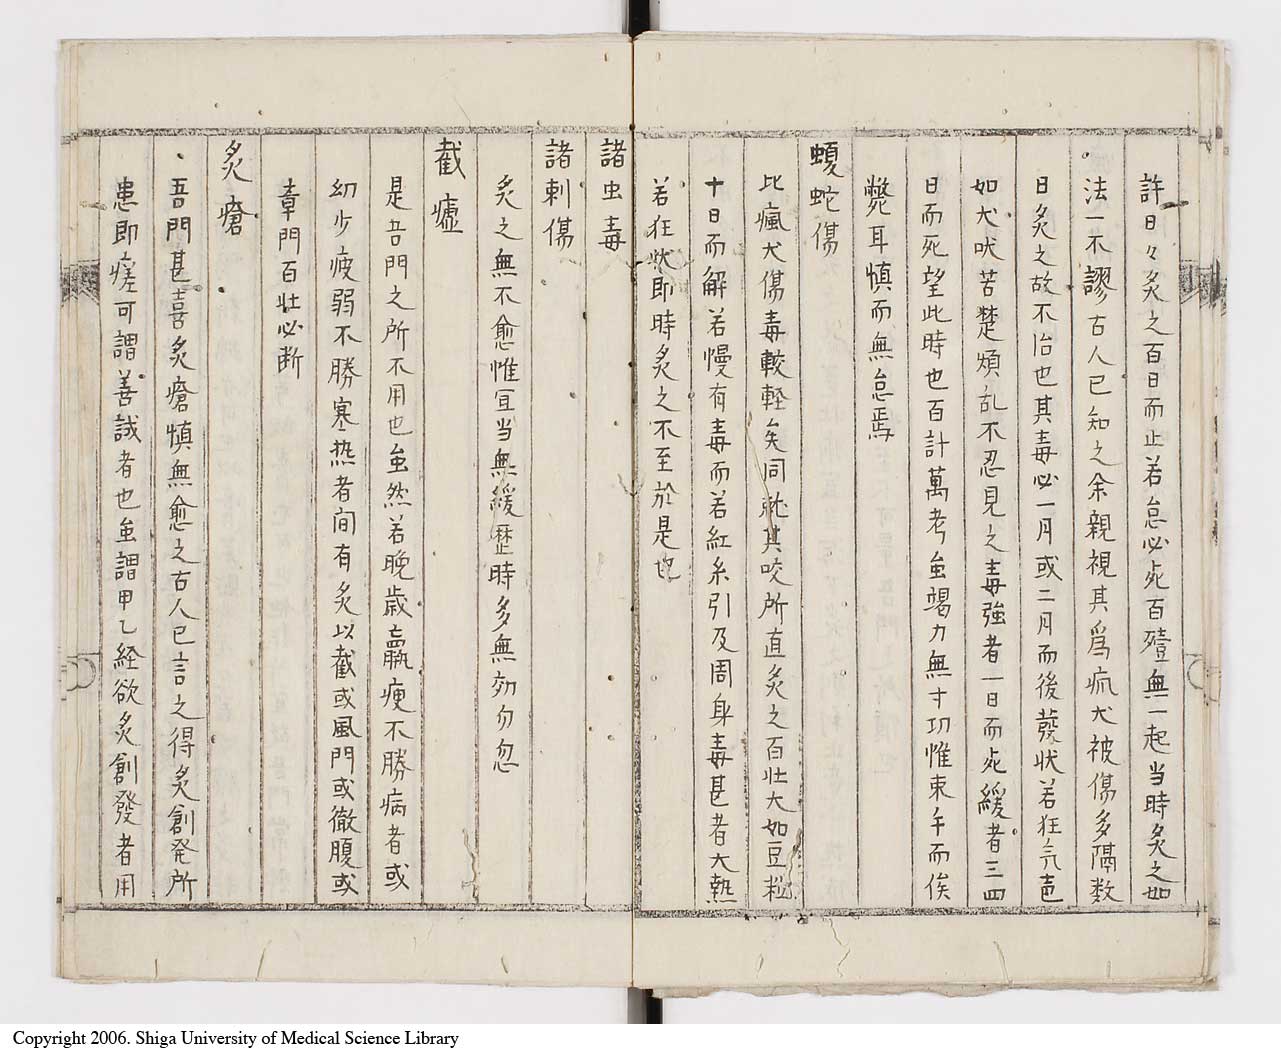 許日々炙之百日而止若怠必死百殪無一起当時炙之如
法一不謬古人已知之余親視其爲瘋犬被傷多隔数
日炙之故不治也其毒必一月或二月而後發状若狂気邑
如犬吠苦楚煩乱不忍見之毒強者一日而死緩者三四
日而死望此時也百計萬考虽竭力無寸功惟束手而俟
斃耳慎而無怠焉
蝮蛇傷
比瘋犬傷毒較軽矣同就其咬所直炙之百壮大如豆粒
十日而解若慢有毒而若紅糸引及周身毒甚者大熱
若狂状即時炙之不至於是也
諸虫毒
諸刺傷
炙之無不愈惟宜当無緩歴時多無効勿忽
截瘧
是吾門之所不用也虽然若晩歳羸痩不勝病者或
幼少疲弱不勝寒热者间有炙以截或風門或徹腹或
章門百壮必断
炙瘡
吾門甚喜炙瘡慎無愈之古人已言之得炙創発所
患即瘥可謂善誠者也虽謂甲乙経欲炙創發者用
Copyright 2006. Shiga University of Medical Science Library